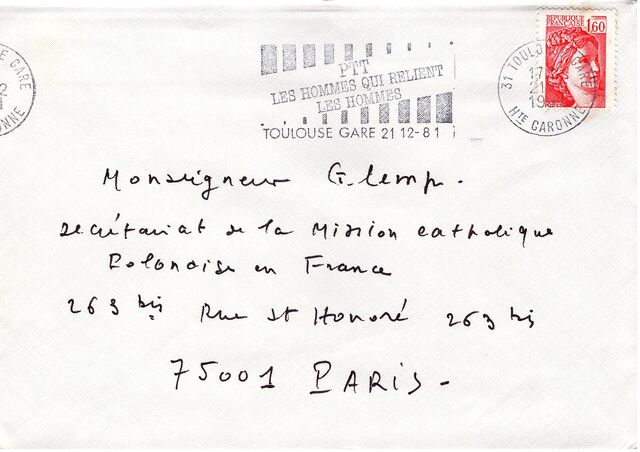 GARE
PTT
LES HOMMES QUI RELIENT
LES HOMMES
TOULOUSE GARE 21 12-81
REPUBLIQUE
FRANÇAISE
1,60
31 TOULOUSE GARE
17
21
19
Hte GARONNE
Monseigneur Glemp.
secrétariat de la Mission catholique
Polonaise en France
263 bis Rue St Honoré 263 bis
75001 PARIS -